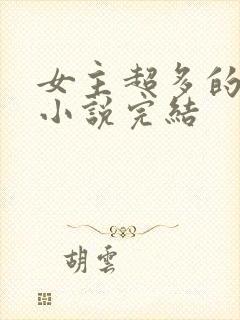 女主超多的
小說完結
胡雲